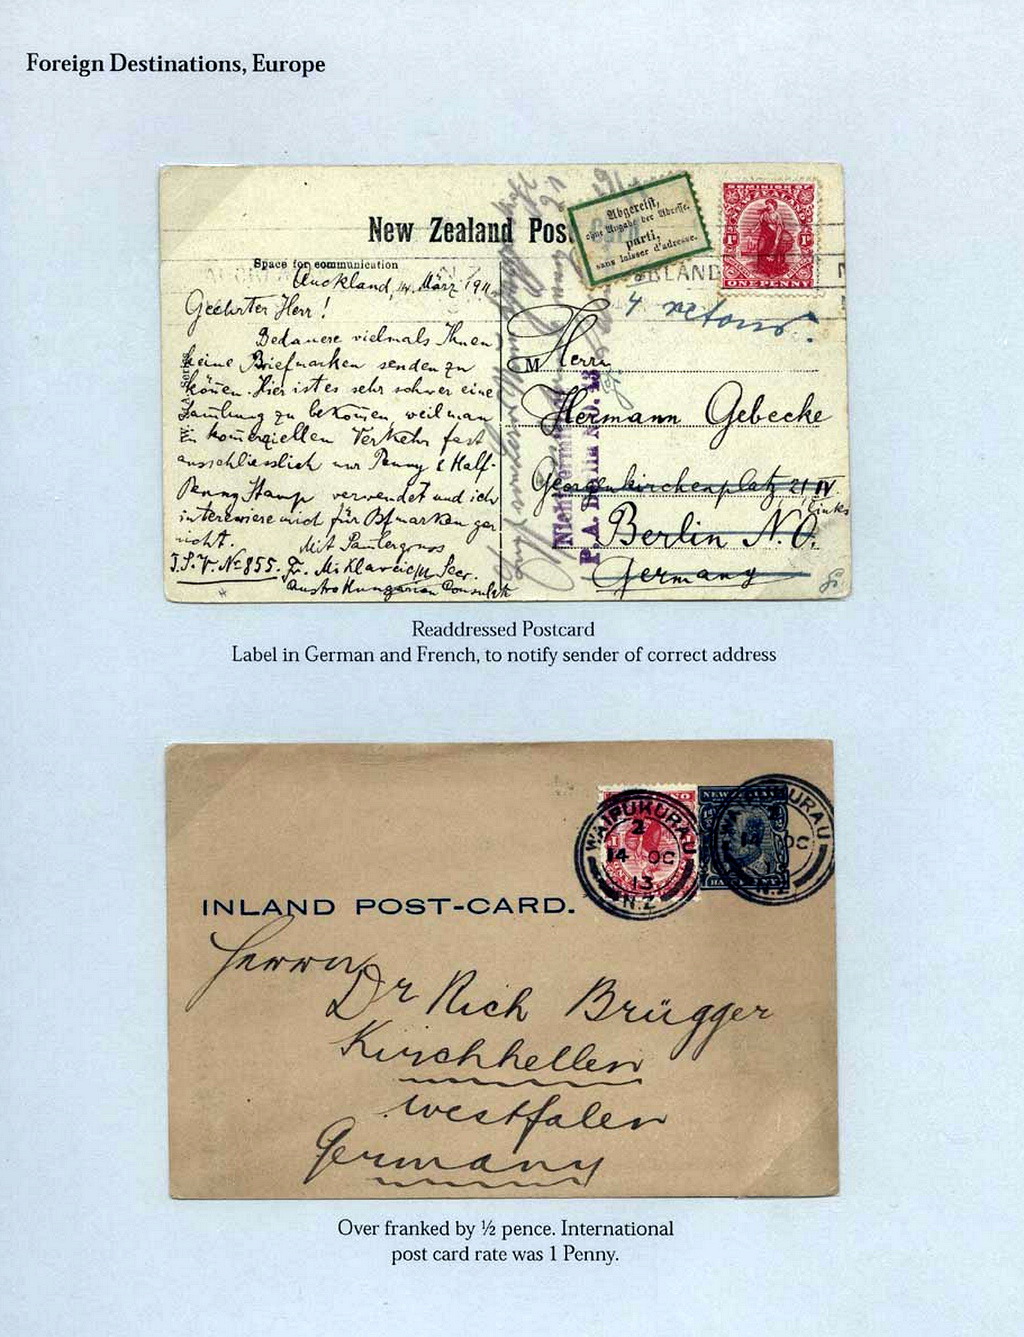 Foreign Destinations, Europe
New Zealand Post Card
Space for communication
Auckland, 14. März 1911
Geehrter Herr!
Bedauere vielmals Ihnen
keine Briefmarken senden zu
können. Hier ist es sehr schwer eine
Samlung zu bekomen weil man
im komerziellen Verkehr fast
ausschliesslich nur Penny & Half-
Penny Stamp verwendet und ich
für Bfmarken gar
nicht.
Mit Samlergruss
I.S.V. No 855. Fr. M. Klarcich Secr.
Austro Hungarian Consulate
Abgereist,
ohne Angabe der Adresse.
parti,
sans laisser d'adresse.
DOMINION OF
NEW ZEALAND
1D 1D
ONE PENNY
ISLAND
retour.
M Herrn
Hermann Gebecke
Georgenkirchenplatz 21 IV
links
Berlin N.O.
Germany
P.A. Berlin N.O. 43
Readdressed Postcard
Label in German and French, to notify sender of correct address
NEW ZEALAND
WAIPUKURAU
2
14 OC
13
N.Z
WAIPUKURAU
14 OC
N.Z
INLAND POST-CARD.
Herrn
Dr Rich Brügger
Kirchhellen
Westfalen
Germany
Over franked by ½ pence. International
post card rate was 1 Penny.